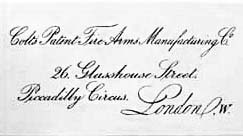 Colt's Patent Fire Arms Manufacturing Co
26, Glasshouse Street,
Piccadilly Circus, London, W.